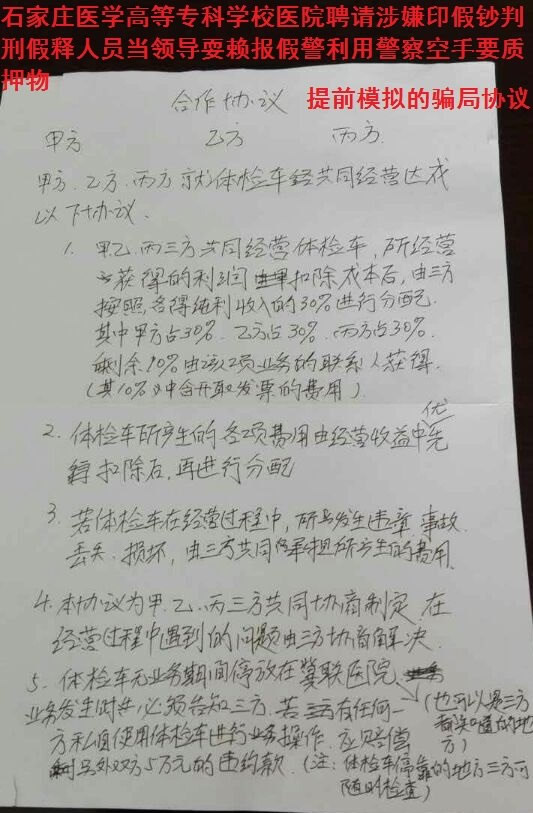 石家庄医学高等专科学校医院聘请涉嫌印假钞判
刑假释人员当领导耍赖报假警利用警察空手要质
押物
合作协议
提前模拟的骗局协议
甲方 乙方 丙方.
甲方、乙方、丙方就体检车经共同经营达成
以下协议、
1. 甲乙丙三方共同经营体检车,所经营
获得的利润 扣除成本后,由三方
按照,各得纯利收入的30%进行分配.
其中甲方占30%. 乙方占30%. 丙方占30%.
剩余10%由该项业务的联系人获得.
(其10%中含开取发票的费用)
优
2. 体检车所产生的各项费用由经营收益中先
扣除后,再进行分配
3. 若体检车在经营过程中,所发生违章 事故.
丢失. 损坏, 由三方共同承担所产生的费用.
4. 本协议为甲.乙.丙三方共同协商制定. 在
经营过程中遇到的问题由三方协商解决.
5. 体检车无业务期间停放在冀联医院.
(也可以是三方
业务发生时必须告知三方. 若有任何一
方)
方私自使用体检车进行业务操作. 应赔偿
另外双方5万元的违约款. (注: 体检车停靠的地方三方可
随时检查)